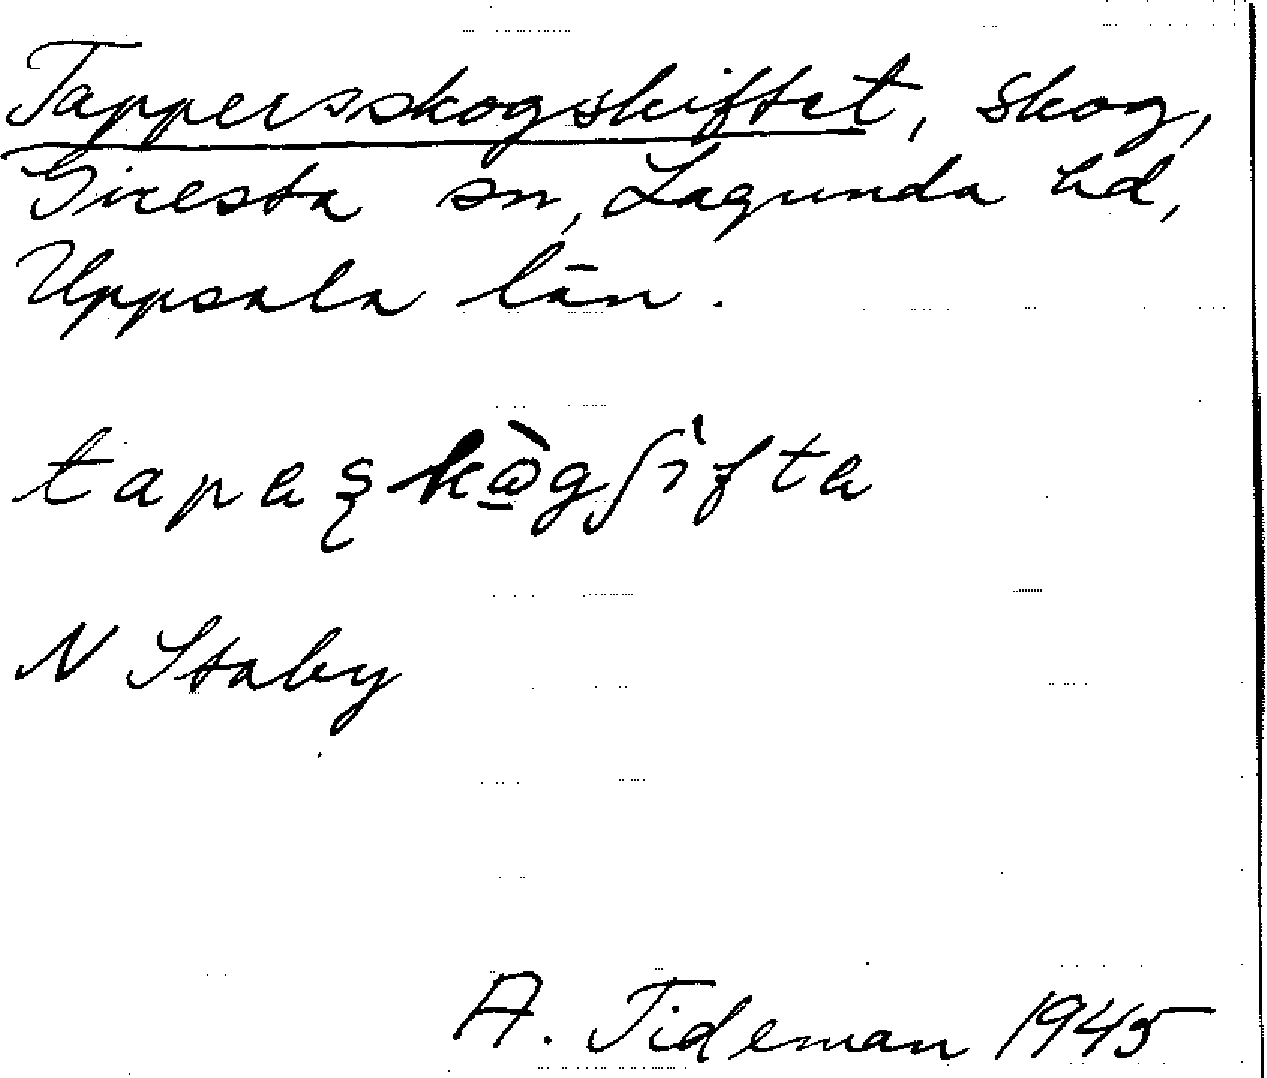 Tappersskogskiftet, skog,
Giresta sn, Lagunda hd,
Uppsala län.
tapaʂkò̠gʃìfta
N Staby
A. Tideman 1945